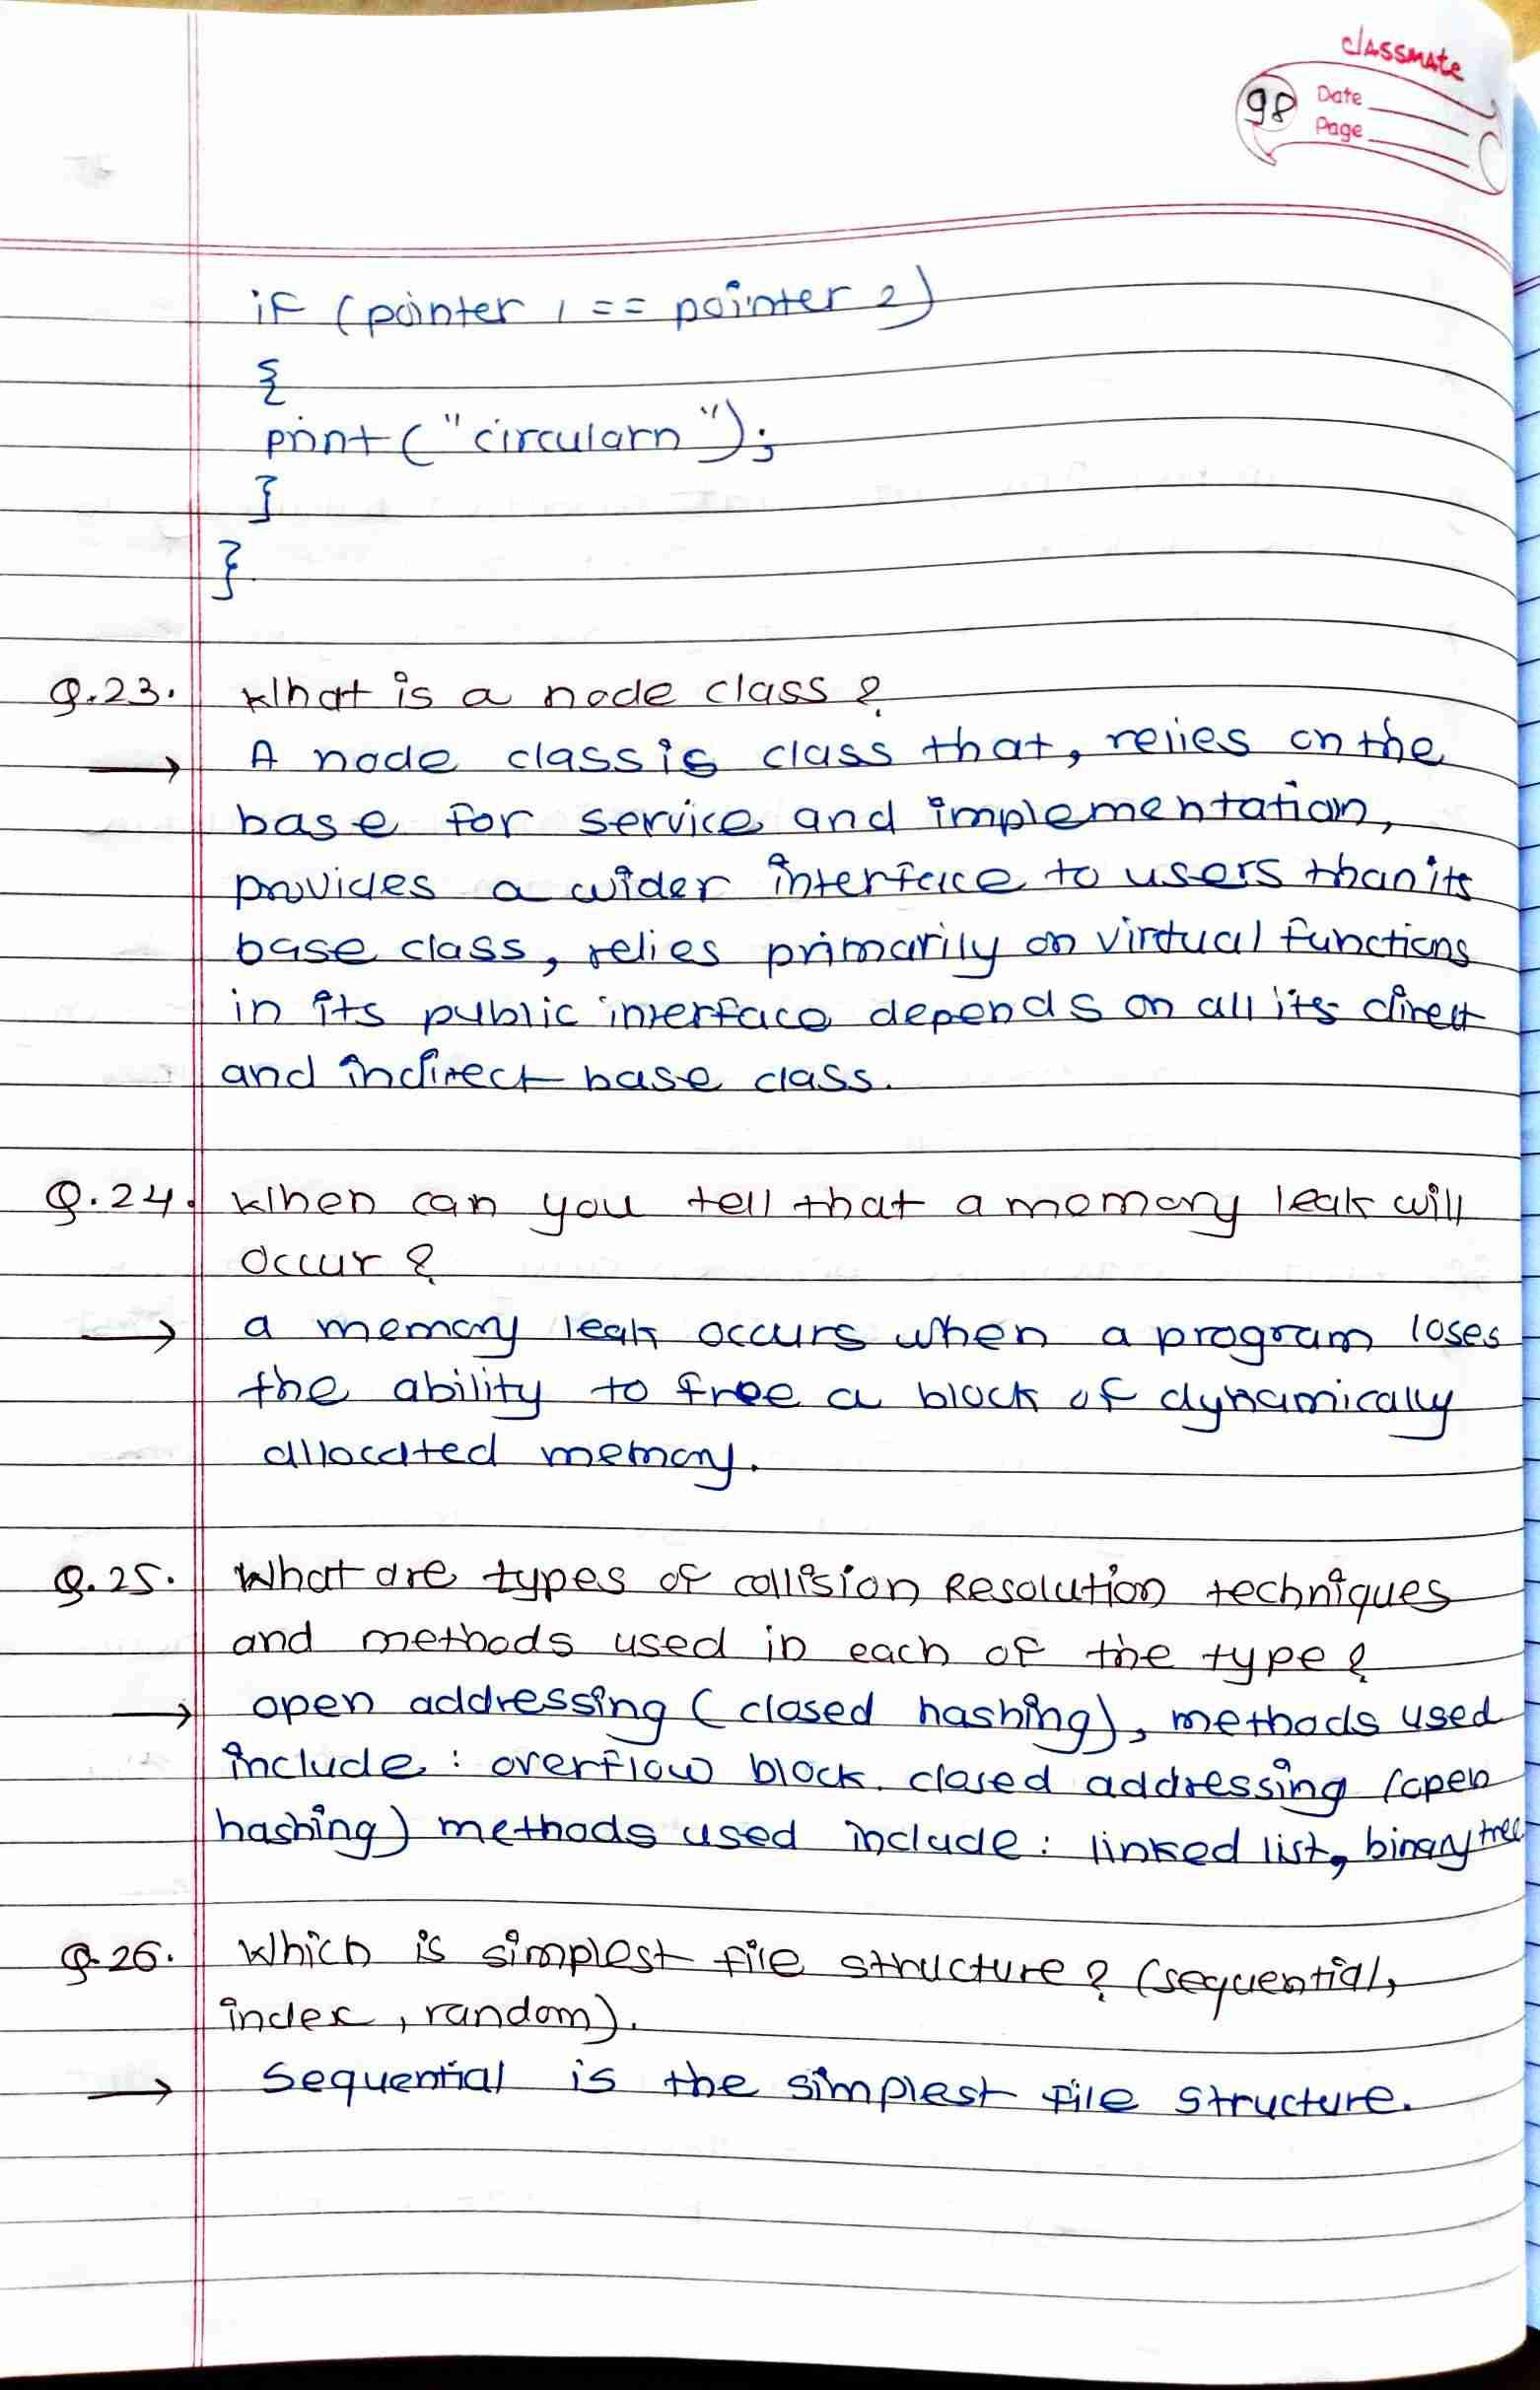 classmate
98
Date
Page
if (pointer 1 == pointer 2)
{
print ("circularn");
}
}
Q.23. What is a node class?
→ A node class is class that, relies on the
base for service and implementation,
provides a wider interface to users than its
base class, relies primarily on virtual functions
in its public interface depends on all its direct
and indirect base class.
Q.24. When can you tell that a memory leak will
occur?
→ a memory leak occurs when a program loses
the ability to free a block of dynamically
allocated memory.
Q.25. What are types of collision Resolution techniques
and methods used in each of the type?
→ open addressing (closed hashing), methods used
include: overflow block. closed addressing (open
hashing) methods used include: linked list, binary tree
Q.26. Which is simplest file structure? (sequential,
index, random).
→ Sequential is the simplest file structure.